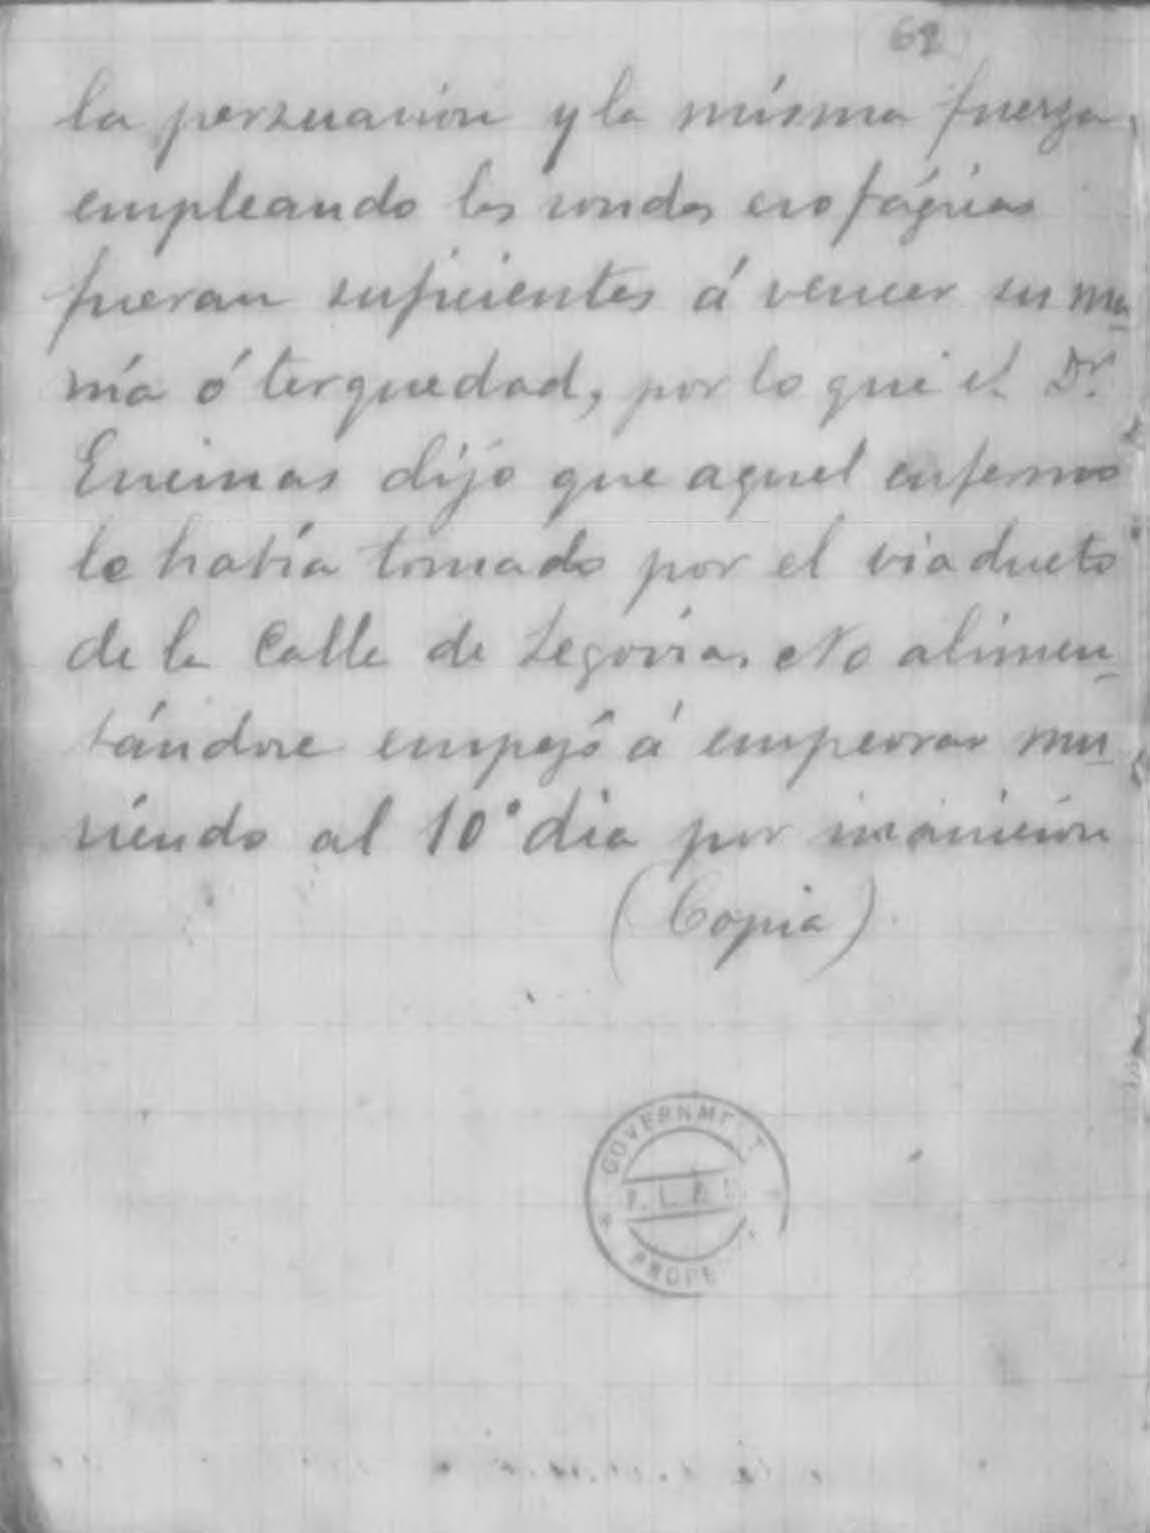 62
la persuación y la misma fuerza,
empleando las sondas esofágicas
fueran suficientes á vencer su ma
nía ó terquedad, por lo que el Dr.
Encinas dijo que aquel enfermo
le había tomado por el viaducto
de la Calle de Segovia. No alimen
tándose empezó á empeorar mu
riendo al 10° dia por inanición
(Copia)
GOVERNMENT
PROPE